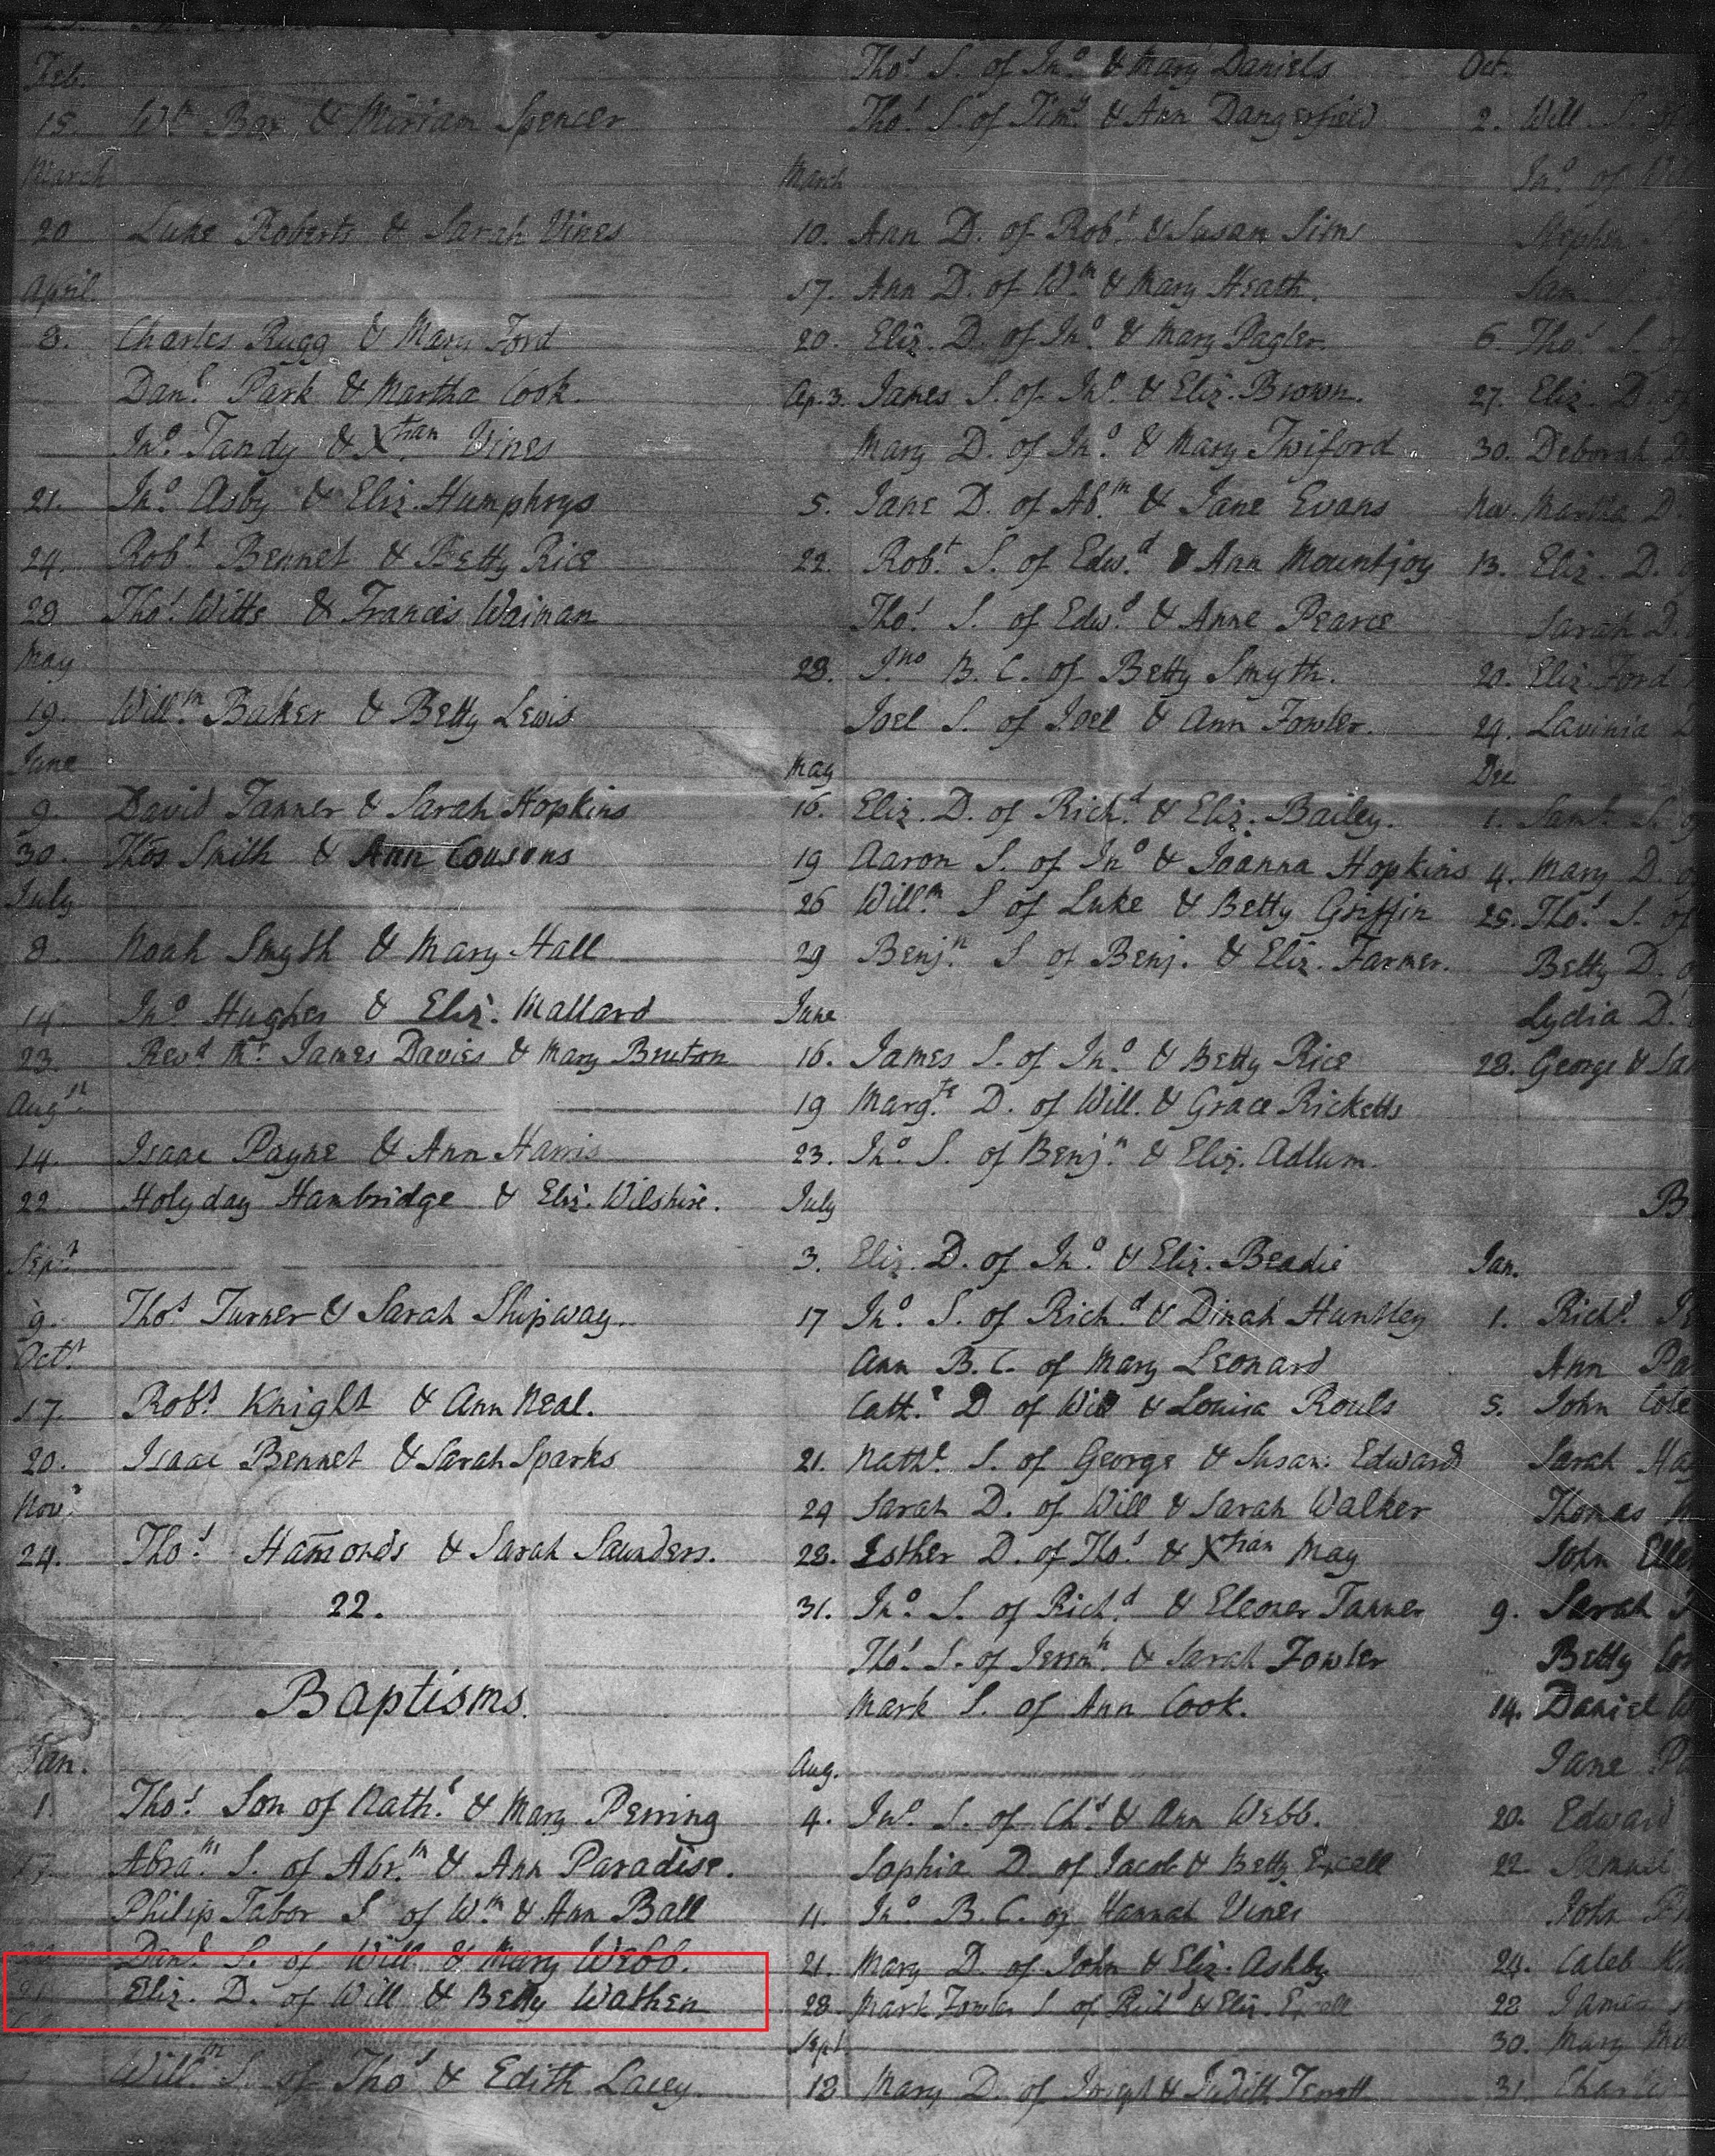 Feb.
15. Wm Box & Miriam Spencer
March
20 Luke Roberts & Sarah Vines
April
8. Charles Rugg & Mary Ford
Danl. Park & Martha Cook.
Jno. Tandy & Xtian Vines
21. Jno. Asby & Eliz. Humphrys
24. Robt. Bennet & Betty Rice
28 Thos. Witts & Frances Waiman
May
19. Willm. Baker & Betty Lewis
June
9. David Tanner & Sarah Hopkins
30. Thos Smith & Ann Cousens
July
8. Noah Smyth & Mary Hall
14. Jno. Hughes & Eliz. Mallard
23. Revd. Mr. James Davies & Mary Bruton
Augst.
14. Isaac Payne & Ann Harris
22 Holyday Hambridge & Eliz. Wilshire.
Sept.
9. Thos Turner & Sarah Shipway.
Octr.
17. Robt. Knight & Ann Neal.
20. Isaac Bennet & Sarah Sparks
Novr.
24. Thos. Hamonds & Sarah Saunders.
22.
Baptisms.
Jan.
1. Thos. Son of Nathl. & Mary Perring
17. Abram. S. of Abrm. & Ann Paradise.
Philip Tabor S of Wm. & Ann Ball
Danl. S. of Will & Mary Webb.
Eliz. D. of Will & Betty Wathen
Willm. S. of Thos & Edith Lacey.
Thos. S. of Jno. & Mary Daniels
Thos. S. of Timy. & Ann Dangerfield
March
10. Ann D. of Robt. & Susan Sims
17. Ann D. of Wm. & Mary Heath.
20. Eliz. D. of Jno. & Mary Pagler.
Ap. 3. James S. of Jno. & Eliz. Brown.
Mary D. of Jno. & Mary Twiford
5. Jane D. of Abm. & Jane Evans
22. Robt. S. of Edwd. & Ann Mountjoy
Thos. S. of Edwd. & Anne Pearce
28. Jno B. C. of Betty Smyth.
Joel S. of Joel & Ann Fowler.
May
16. Eliz. D. of Richd. & Eliz. Bailey.
19 Aaron S. of Jno. & Joanna Hopkins
26 Willm. S of Luke & Betty Griffin
29 Benjn. S of Benj. & Eliz. Farmer.
June
16. James S. of Jno. & Betty Rice
19 Margte. D. of Will. & Grace Ricketts
23. Jno. S. of Benjn. & Eliz. Adlum.
July
3. Eliz. D. of Jno. & Eliz. Beadie
17 Jno. S. of Richd. & Dinah Huntley
Ann B. C. of Mary Leonard
Cathe. D of Will & Louisa Rouls
21. Nathl. S. of George & Susan. Edwards
24 Sarah D. of Will & Sarah Walker
28. Esther D. of Thos. & Xtian May
31. Jno. S. of Richd. & Eleoner Tanner
Thos. S. of Jeremh. & Sarah Fowler
Mark S. of Ann Cook.
Aug.
4. Jno. S. of Chs. & Ann Webb.
Sophia D. of Jacob & Betty Excell
11. Jno. B. C. of Hannah Vines
21. Mary D. of John & Eliz. Ashby
28. Mark Fowler S. of Richd & Eliz. Excell
Sept
18 Mary D. of Joseph & Judith Terrett
Oct.
2. Will. S. of
Jno. of
Stephen
Sam
6. Thos. S. of
27. Eliz. D. of
30. Deborah D.
Nov. Martha D.
13. Eliz. D.
Sarah D.
20. Eliz Ford
24. Lavinia
Dec
1. Saml. S.
4. Mary D.
25. Thos. S. of
Betty D.
Lydia D.
28. George &
B
Jan.
1. Richd.
Ann
5. John Cole
Sarah
Thomas
John
9. Sarah
Betty
14. Daniel
Jane
20. Edward
22. Samuel
John
24. Caleb
28 James
30. Mary
31